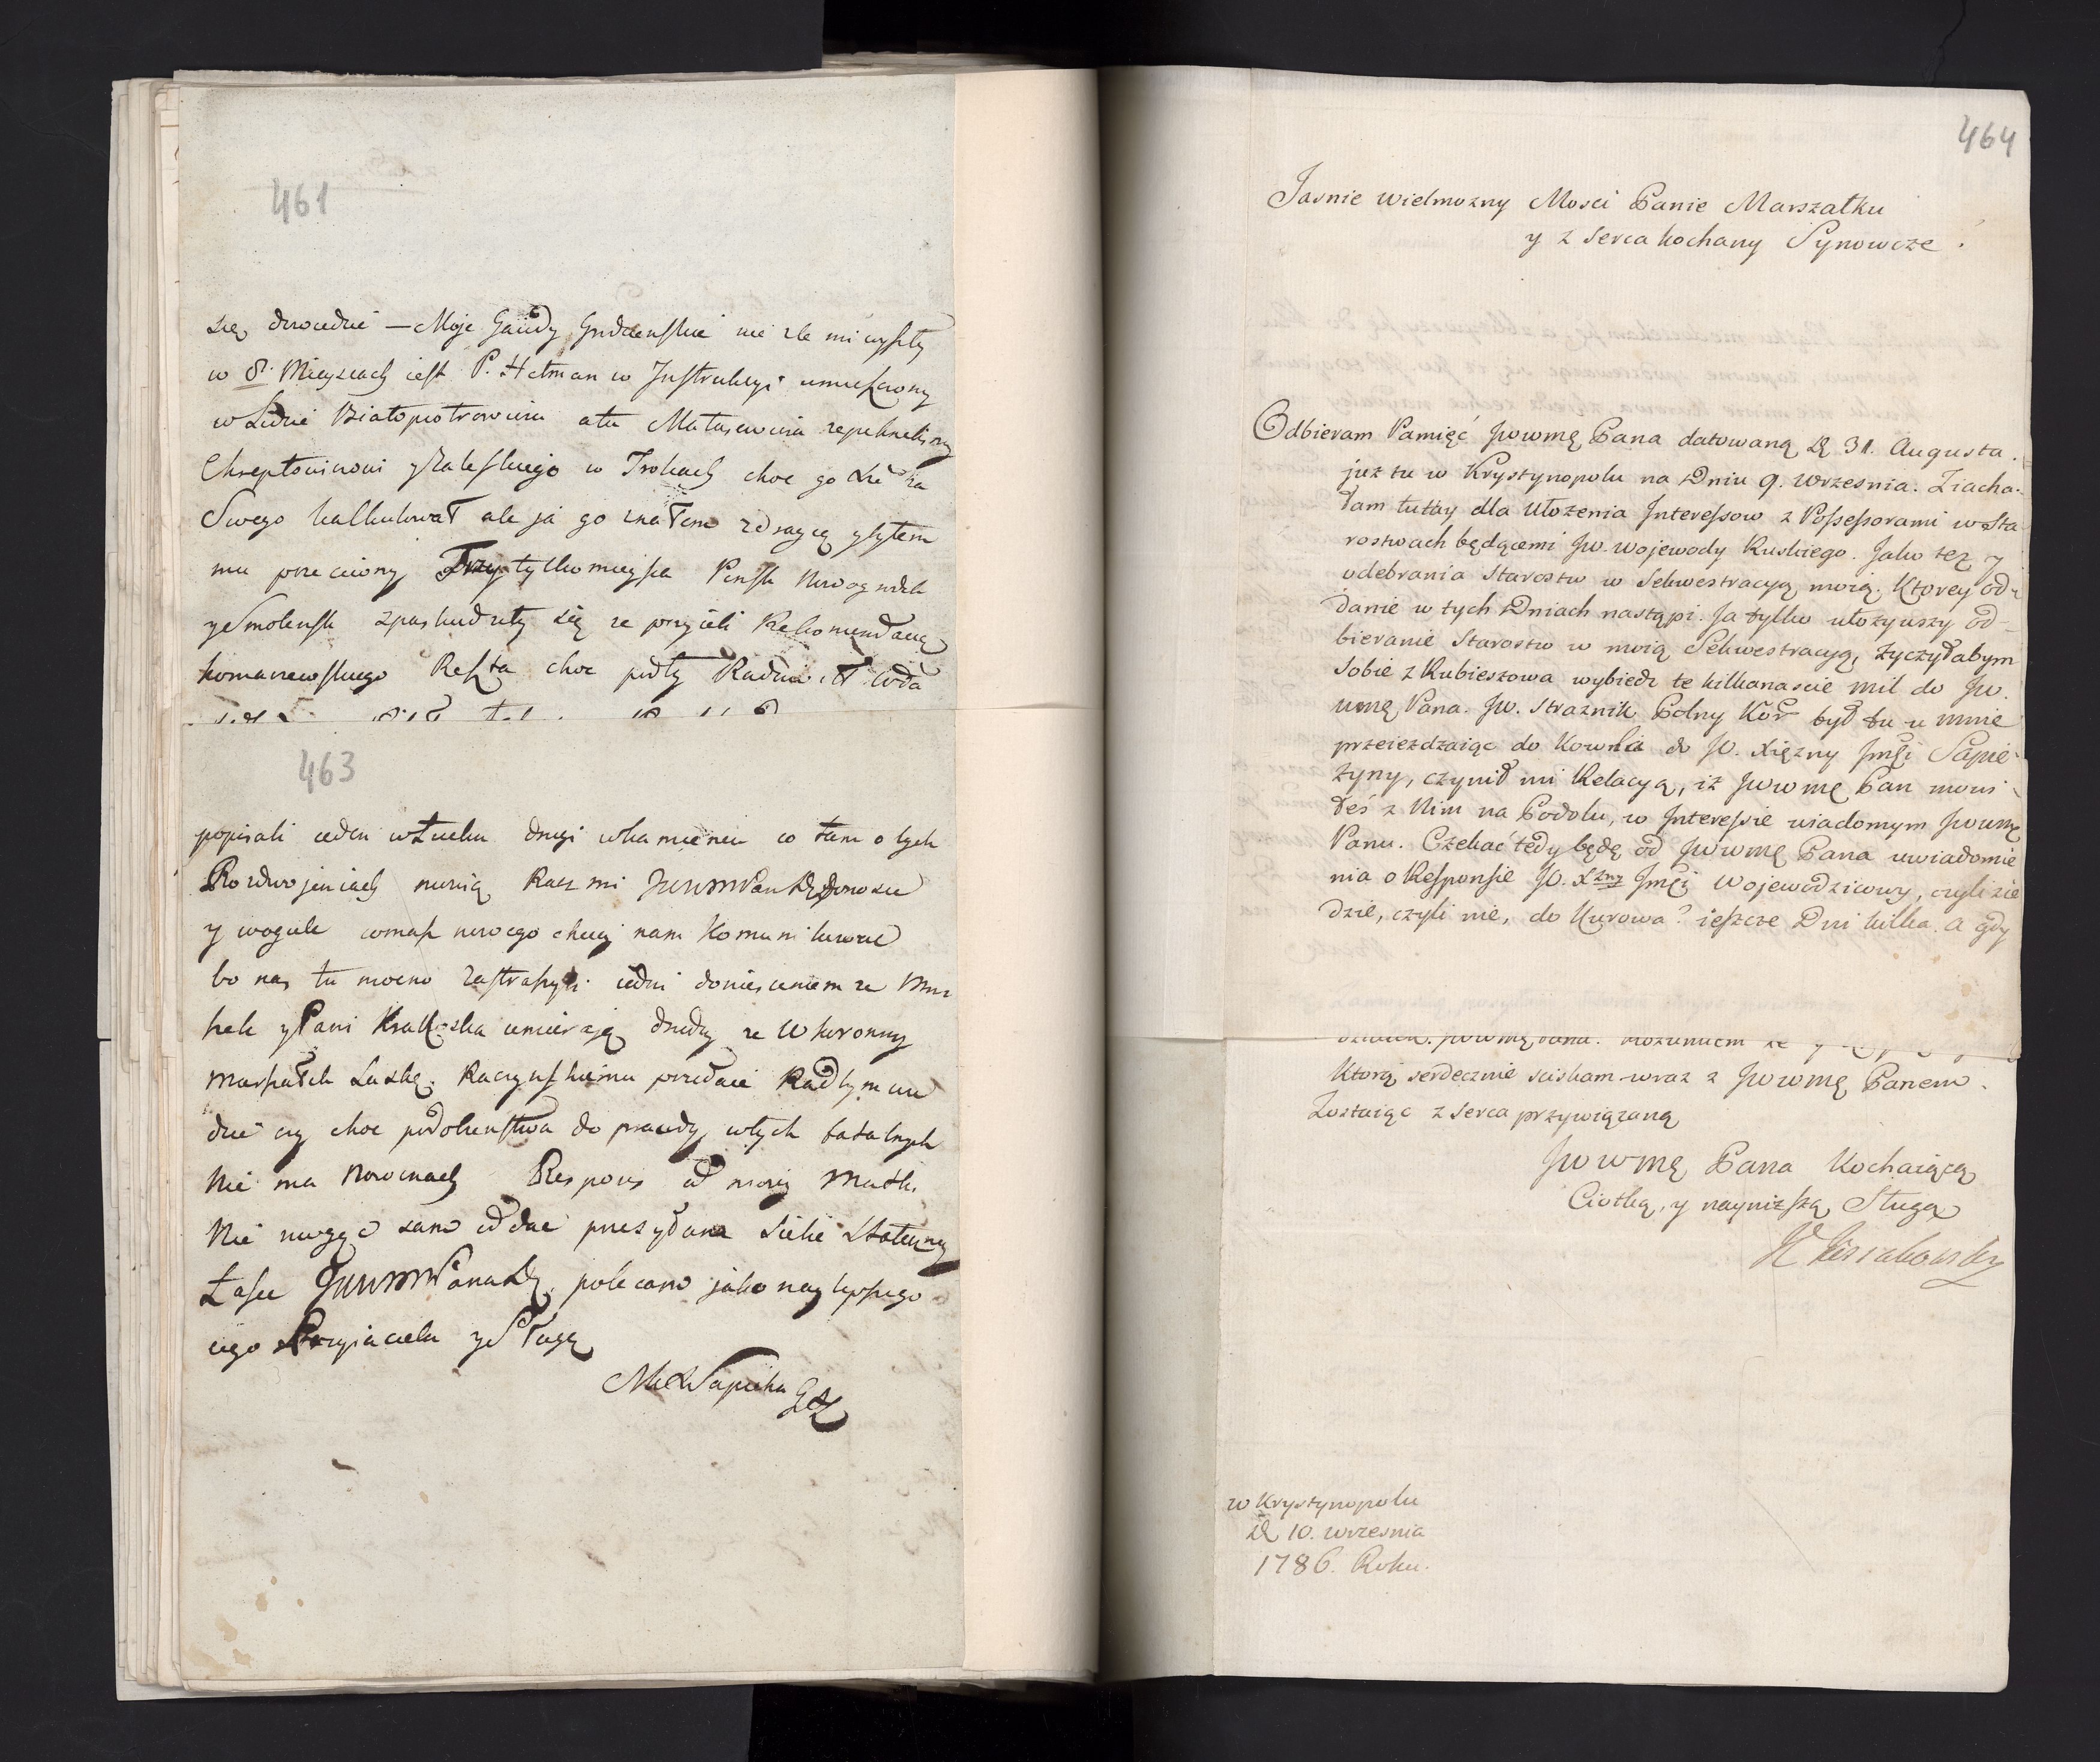 461
się dowiedzić — Moje Gaudy Grodzienskie nie źle mi wyszły
w 8. Mieyscach iest P. Hetman w Instrukcyi umieszczony
w Lidzie Białopiotrowicza
Chreptowiczowi y Zaleskiego w Trokach choc go
Swego kalkulował ale ja go znałem zdraycę y byłem
mu przeciwny Trzy tylko mieysca Pinsk Nowogrudek
y Smolensk zpaskudziły się ze przyieli Rekomendacyą
Romanowskiego Reszta choc
463
popisali ieden w Łucku drugi w Kamieńcu co tam o tych
Rozdwojeniach mowią Racz mi JWWMPan Dobr donosic
y wogule comasz nowego chciey nam Komunikowac
bo nas tu mocno zastraszyli iedni doniesieniem ze Mni
szek y Pani Krakowska umieraią drudzy ze W Koronny
Marszałek Laskę Raczynskiemu przedaie
czy choc podobienstwa do prawdy w tych fatalnych
Nie ma Nowinach Respons od moiey Matki
Nie mogąc sam oddac przesyłam Siebie Stateczney
Łasce JWWMPana Dobr polecam jako naylepszego
iego Przyiaciela y Sługę
Sapieha
464
Jasnie wielmozny Mosci Panie Marszałku
y z serca kochany Synowcze !
Odbieram Pamięć Jwwmę Pana datowaną D 31. Augusta.
juz tu w Krystynopolu na Dniu 9. wrzesnia. Ziacha-
łam tutay dla Ułozenia Interessow z Possessorami w Sta
rostwach będącemi Jw. wojewody Ruskiego. Jako tez y
odebrania Starostw w Sekwestracyą moią. Ktorey od-
danie w tych Dniach nastąpi. Ja tylko ułozywszy od-
bieranie Starostw w moią Sekwestracyą, zyczyłabym
sobie z Rubieszowa wybiedz te kilkanascie mil do Jw.
wmę Pana. Jw. Straznik Polny Kor był tu u mnie
przeiezdzaiąc do Kowla do JO. Xięzny Jmęi Sapie-
zyny, czynił mi Relacyą, iz Jwwmę Pan mowi-
łeś z Nim na Podolu, w Interessie wiadomym Jwwmę
Panu. Czekać tedy będę od Jwwmę Pana uwiadomie
nia o Responsie JO. Xzny Jmęi Wojewodzicowy, czyli zie
dzie, czyli nie, do Kurowa? ieszcze Dni kilka. a gdy
Ktorą serdecznie sciskam wraz z Jwwmę Panem.
Zostaiąc z serca przywiązaną
Jwwmę Pana Kochaiącą
Ciotką, y nayniższą Sługą
w Krystynopolu
D 10. wrzesnia
1786. Roku.